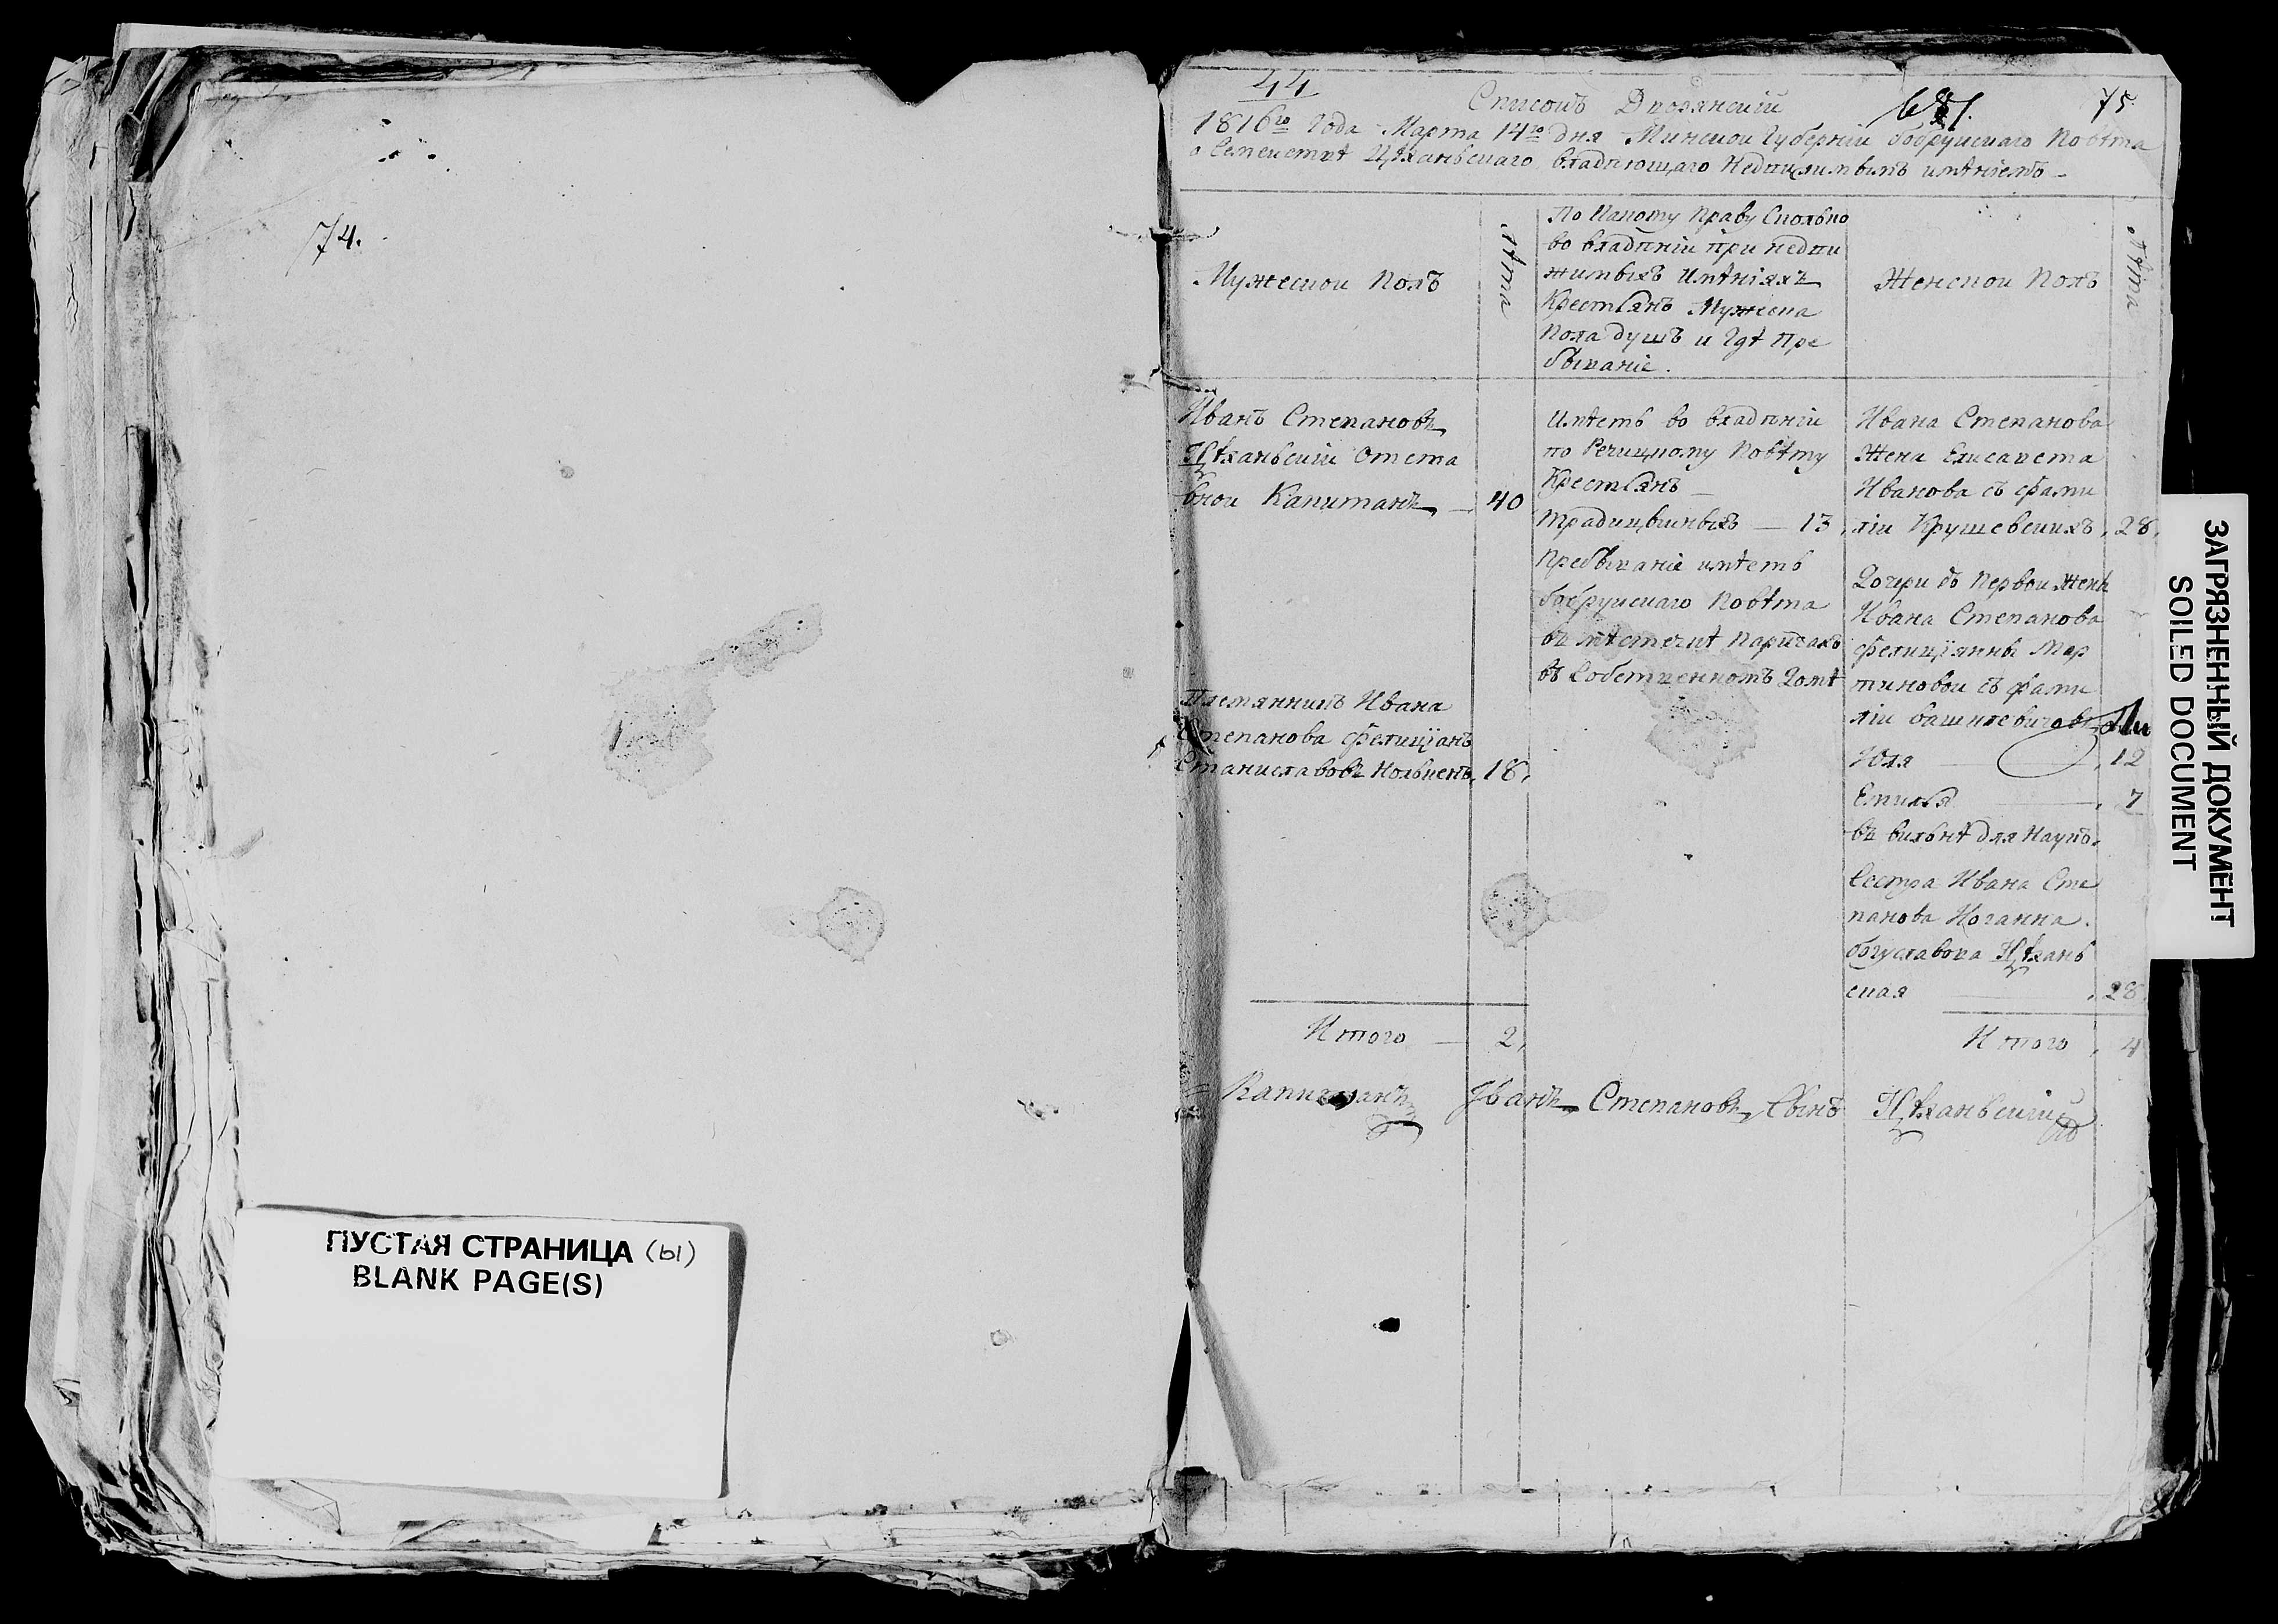 74.
ПУСТАЯ СТРАНИЦА (ы)
BLANK PAGE(S)
44
75
Списокъ Дворянскій
1816го Года Марта 14го дня Минской Губерніи Бобруйскаго Повѣта
о Семействѣ Цѣханьскаго владѣющаго Недвижимымъ имѣніемъ -
Мужеской Полъ
Лѣта
По Какому Праву Сколько
во владѣніи при недви
жимыхъ Имѣніяхъ
Крестьянъ Мужеска
Пола душъ и Гдѣ Пре
бываніе.
Женской Полъ
Лѣта
Иванъ Степановъ
Цѣханьскій Отста
вной Капитанъ — 40
Племянникъ Ивана
Степанова Фелиціянъ
Станиславовъ 18,
Имѣетъ во владѣніи
по Речицкому Повѣту
Крестьянъ —
традиційныхъ — 13,
Пребываніе имѣетъ
Бобруйскаго Повѣта
въ мѣстечкѣ Паричахъ
въ Собственномъ Домѣ
Ивана Степанова
Жена Елисавета
Иванова съ фами
ліи Крушевскихъ, 28,
Дочери съ Первой Жены
Ивана Степанова
Фелиціянны Мар
тиновой съ фами
ліи
Юля — , 12
Емилья — , 7
въ Вильнѣ для Наукъ.
Сестра Ивана Сте
панова Иоганна.
Богуславова Цѣхань
ская — , 28,
Итого — 2,
Итого , 4
Капитанъ Иванъ Степановъ Сынъ Цѣханьскій
ЗАГРЯЗНЕННЫЙ ДОКУМЕНТ
SOILED DOCUMENT